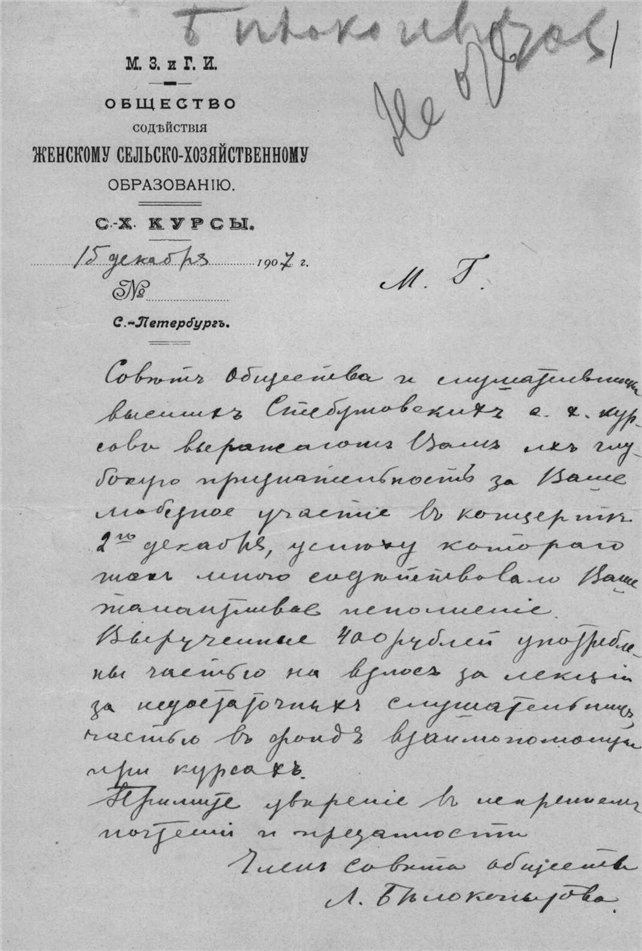 Бѣлокопытова
М. З. и Г. И.
ОБЩЕСТВО
СОДѢЙСТВІЯ
ЖЕНСКОМУ СЕЛЬСКО-ХОЗЯЙСТВЕННОМУ
ОБРАЗОВАНІЮ.
С.-Х. КУРСЫ.
15 декабря 1907 г.
№
С.-Петербургъ.
М. Г.
Совѣтъ Общества и слушательницы
высшихъ Стебутовскихъ с. х. кур-
совъ выражаютъ Вамъ ихъ глу-
бокую признательность за Ваше
любезное участіе въ концертѣ
2го декабря, успѣху котораго
такъ много содѣйствовало Ваше
талантливое исполненіе.
Вырученные 400 рублей употребле-
ны частью на взносъ за лекціи
за недостаточныхъ слушательницъ,
частью въ фондъ взаимопомощи
при курсахъ.
Примите увѣреніе въ искреннемъ
почтеніи и преданности
Членъ совѣта общества
Л. Бѣлокопытова.